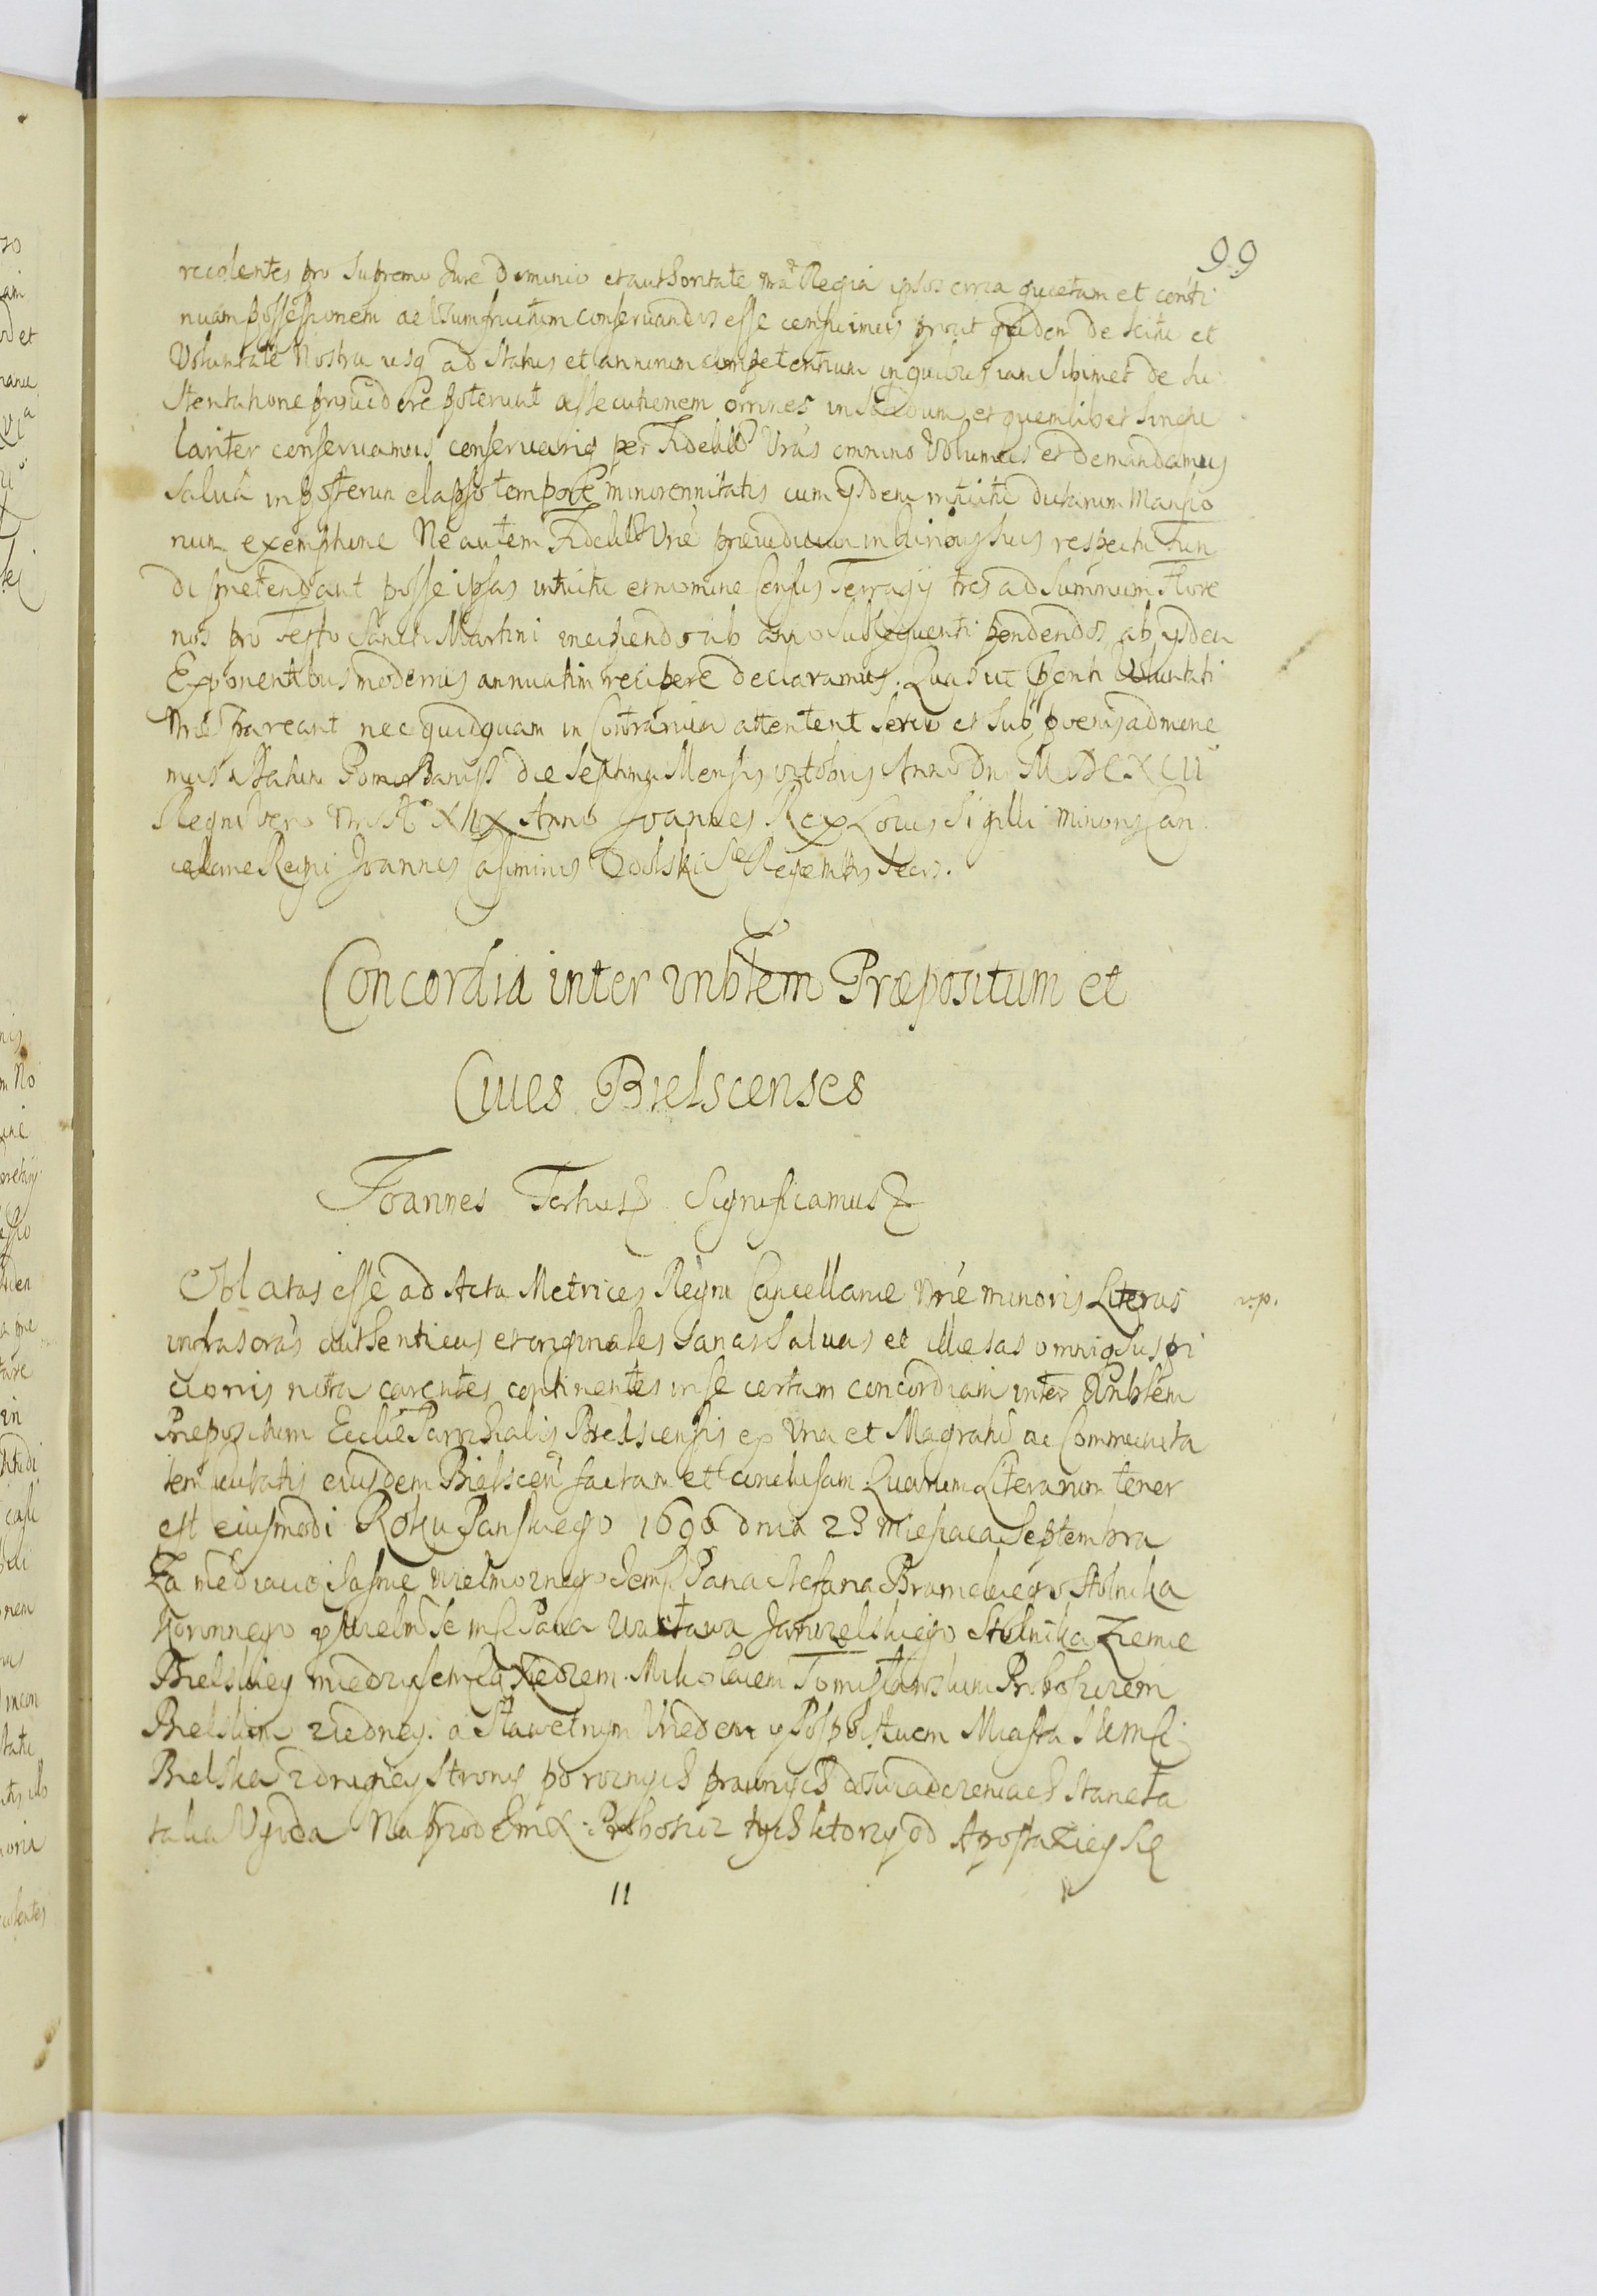 99
recolentes pro Supremo Jure Dominio et authoritate nrã Regia ipsos circa quietam et conti
nuam possessionem ac Usumfructum conservandos esse censuimus prout quidem de scitu et
Voluntate Nostra usq ad status et annorum competentium in quibus iam sibimet de su
stentatione providere poterunt assecutionem omnes in solidum et quemlibet singu
lariter conservamus conservariq per Fidelit Vras omnino Volumus et demandamus
salva in posterum elapso tempore minorennitatis cum ysdem intuitu dictarum Mansio
num exemptione Ne autem Fidelit Vrae respectu Fun
di praetendant posse ipsas intuitu et nomine Census Terragy tres ad summum Flore
nos pro Festo Sancti Martini incipiendo ab anno subsequenti pendendos ab ysdem
Exponentibus modernis annuatim recipere declaramus. Quas ut Voluntati
Nrae pareant nec quidquam in Contrarium attentent serio et sub poenis admone
mus Datum Pomorzanis die Septima Mensis Octobris Anno Dni M DC XC II
Regni Vero Nri XIIX Anno Joannes Rex Locus Sigilli Minoris Can
cellariae Regni Joannes Casimirus Regentis Secr.
Concordia inter Vnblem Præpositum et
Ciues Bielscenses
Joannes Tertius Significamus
Oblatas esse ad Acta Metrices Regni Cancellariæ Nræ minoris Literas
v.p.
infrascras authenticas et originales sanas saluas et illæsas omniq suspi
cionis nota carentes continentes in se certam concordiam inter Vnblem
Præpositum Ecclæ Parochialis Bielscensis ex Vna et Magratu ac Communita
tem ciuitatis eiusdem Bielscen factam et conclusam Quarum Literarum tenor
est eiusmodi Roku Panskiego 1696 dnia 28 Miesiaca Septembra
Za mediacio Jasnie Wielmoznego Jemsc Pana Stefana Branickiego Stolnika
Koronnego y Wielm Jemsc Pana Wacława Jamiołskiego Stolnika Ziemie
Bielskiey miedzy Jemsc Xiedzem Mikołaiem Tomisławskim Proboszczem
Bielskim z iedney a Sławetnym Vrzedem y Pospolstwem Miasta
Bielska z drugiey strony po roznych prawnych doswiadczeniach staneła
taka Vgoda Naprzod Jemsc X Proboszcz tych ktorzy od Apostaziey sie
11